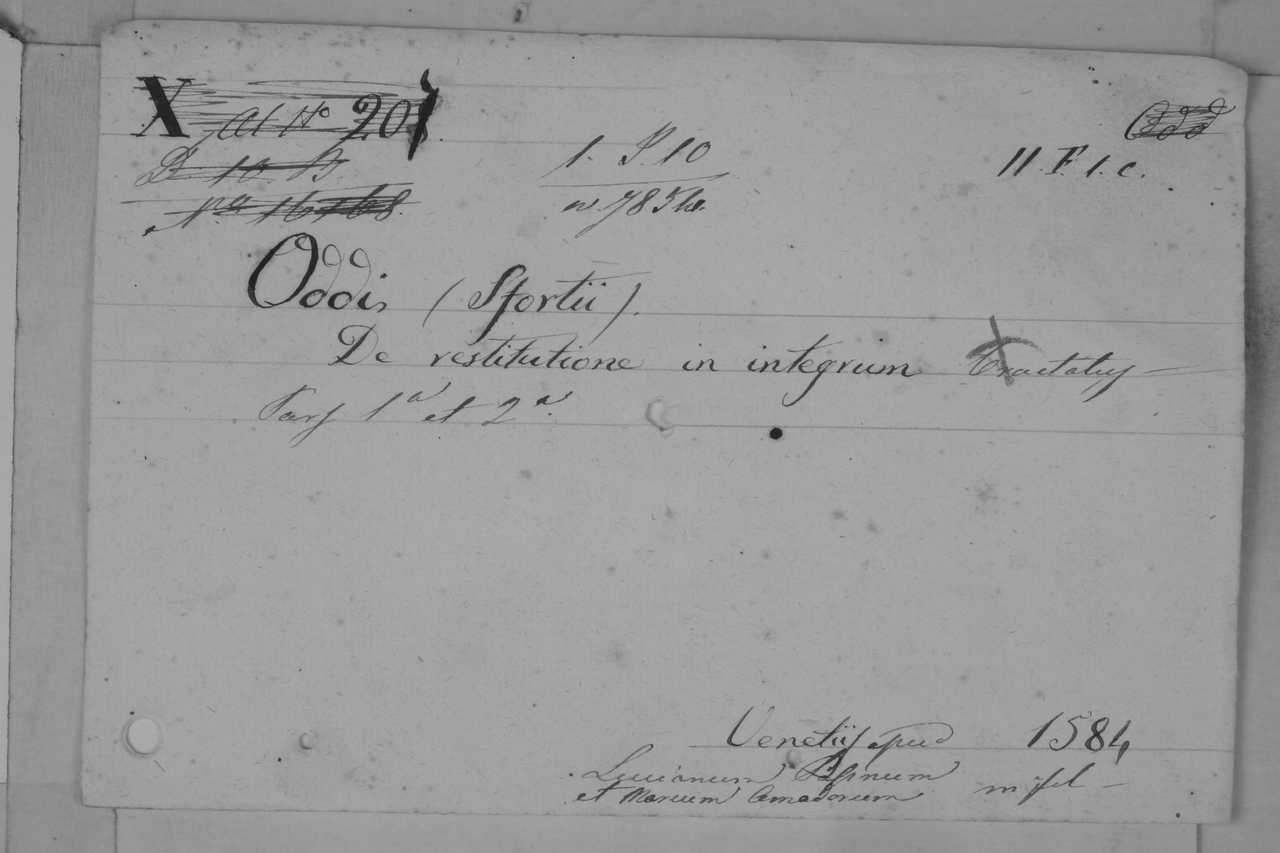 X Al No 207
Odd
D. 10. B.
1. J 10
11. F. 1. c.
No 16168.
Oddis, (Sfortii).
De restitutione in integrum tractatus
Pars 1a et 2a.
Venetiis apud 1584
Lucianum Pasinum
et Marcum Amadorum in fol